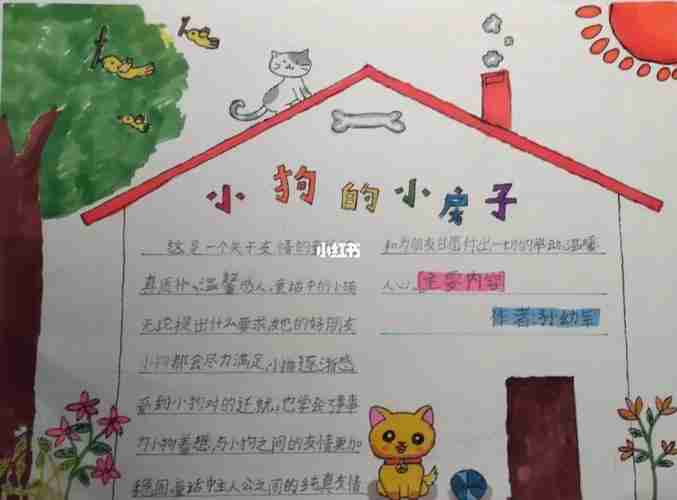 小狗的小房子
这是一个关于友情的
小红书
真质朴、温馨动人,童话中的小猫
无论提出什么要求,她的好朋友
小狗都会尽力满足,小猫逐渐感
受到小狗对的迁就,也学会了事事
为小狗着想,与小狗之间的友情更加
稳固,童话中主人公之间的纯真友情
和为朋友甘愿付出一切的举动,温暖
人心。主要内容
作者:孙幼军